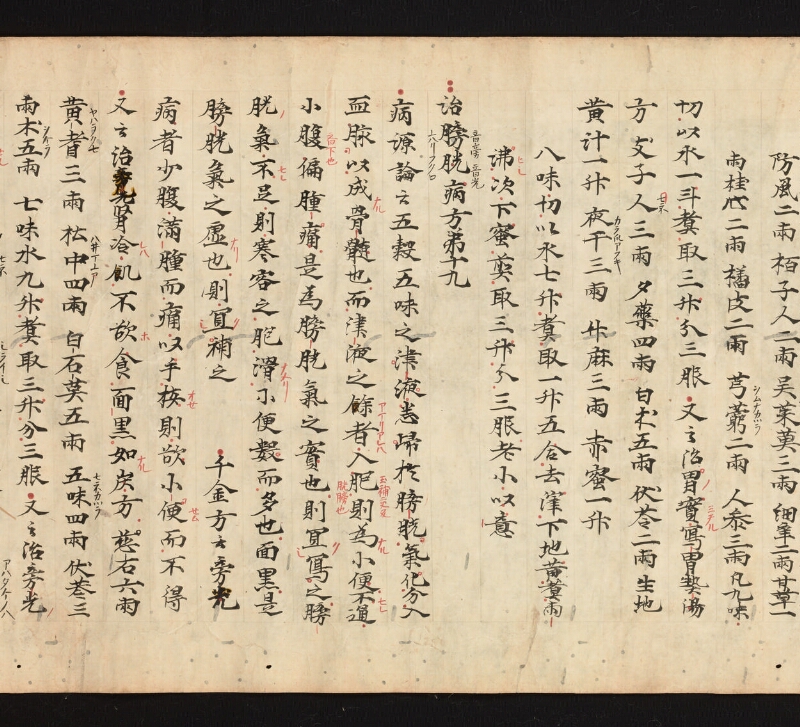 防風二兩 栢子人二兩 吴茱萸三兩 細辛二兩 甘草一
兩 桂心二兩 橘皮二兩 芎藭二兩 人參三兩 凡九味
切以水一斗煑取三升分三服 又云治胃實寫胃熱湯
方 支子人三兩 夕藥四兩 白朮五兩 伏苓二兩 生地
黄汁一升 夜干三兩 升麻三兩 赤蜜一升
八味切以水七升煑取一升五合去滓下地黄煑兩
沸次下蜜煎取三升分三服老小以意
治膀胱病方第十九
病源論云五穀五味之津液悉歸於膀胱氣化分入
血脉以成骨髓也而津液之餘者入胞則為小便不通
小腹偏腫痛是為膀胱氣之實也則冝寫之膀
胱氣不足則寒客之胞滑小便數而多也面黒是
膀胱氣之虚也則冝補之 千金方云旁光
病者少腹滿腫而痛以手桉則欲小便而不得
又云治旁光腎冷飢不欲食面黒如炭方 慈石六兩
黄耆三兩 松中四兩 白石英五兩 五味四兩 伏苓三
兩 朮五兩 七味水九升煑取三升分三服 又云治旁光